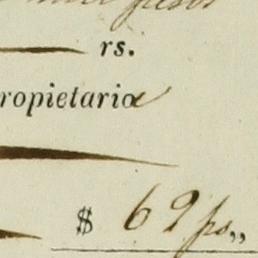 pesos
rs.
ropietaria
$ 62 ps,,